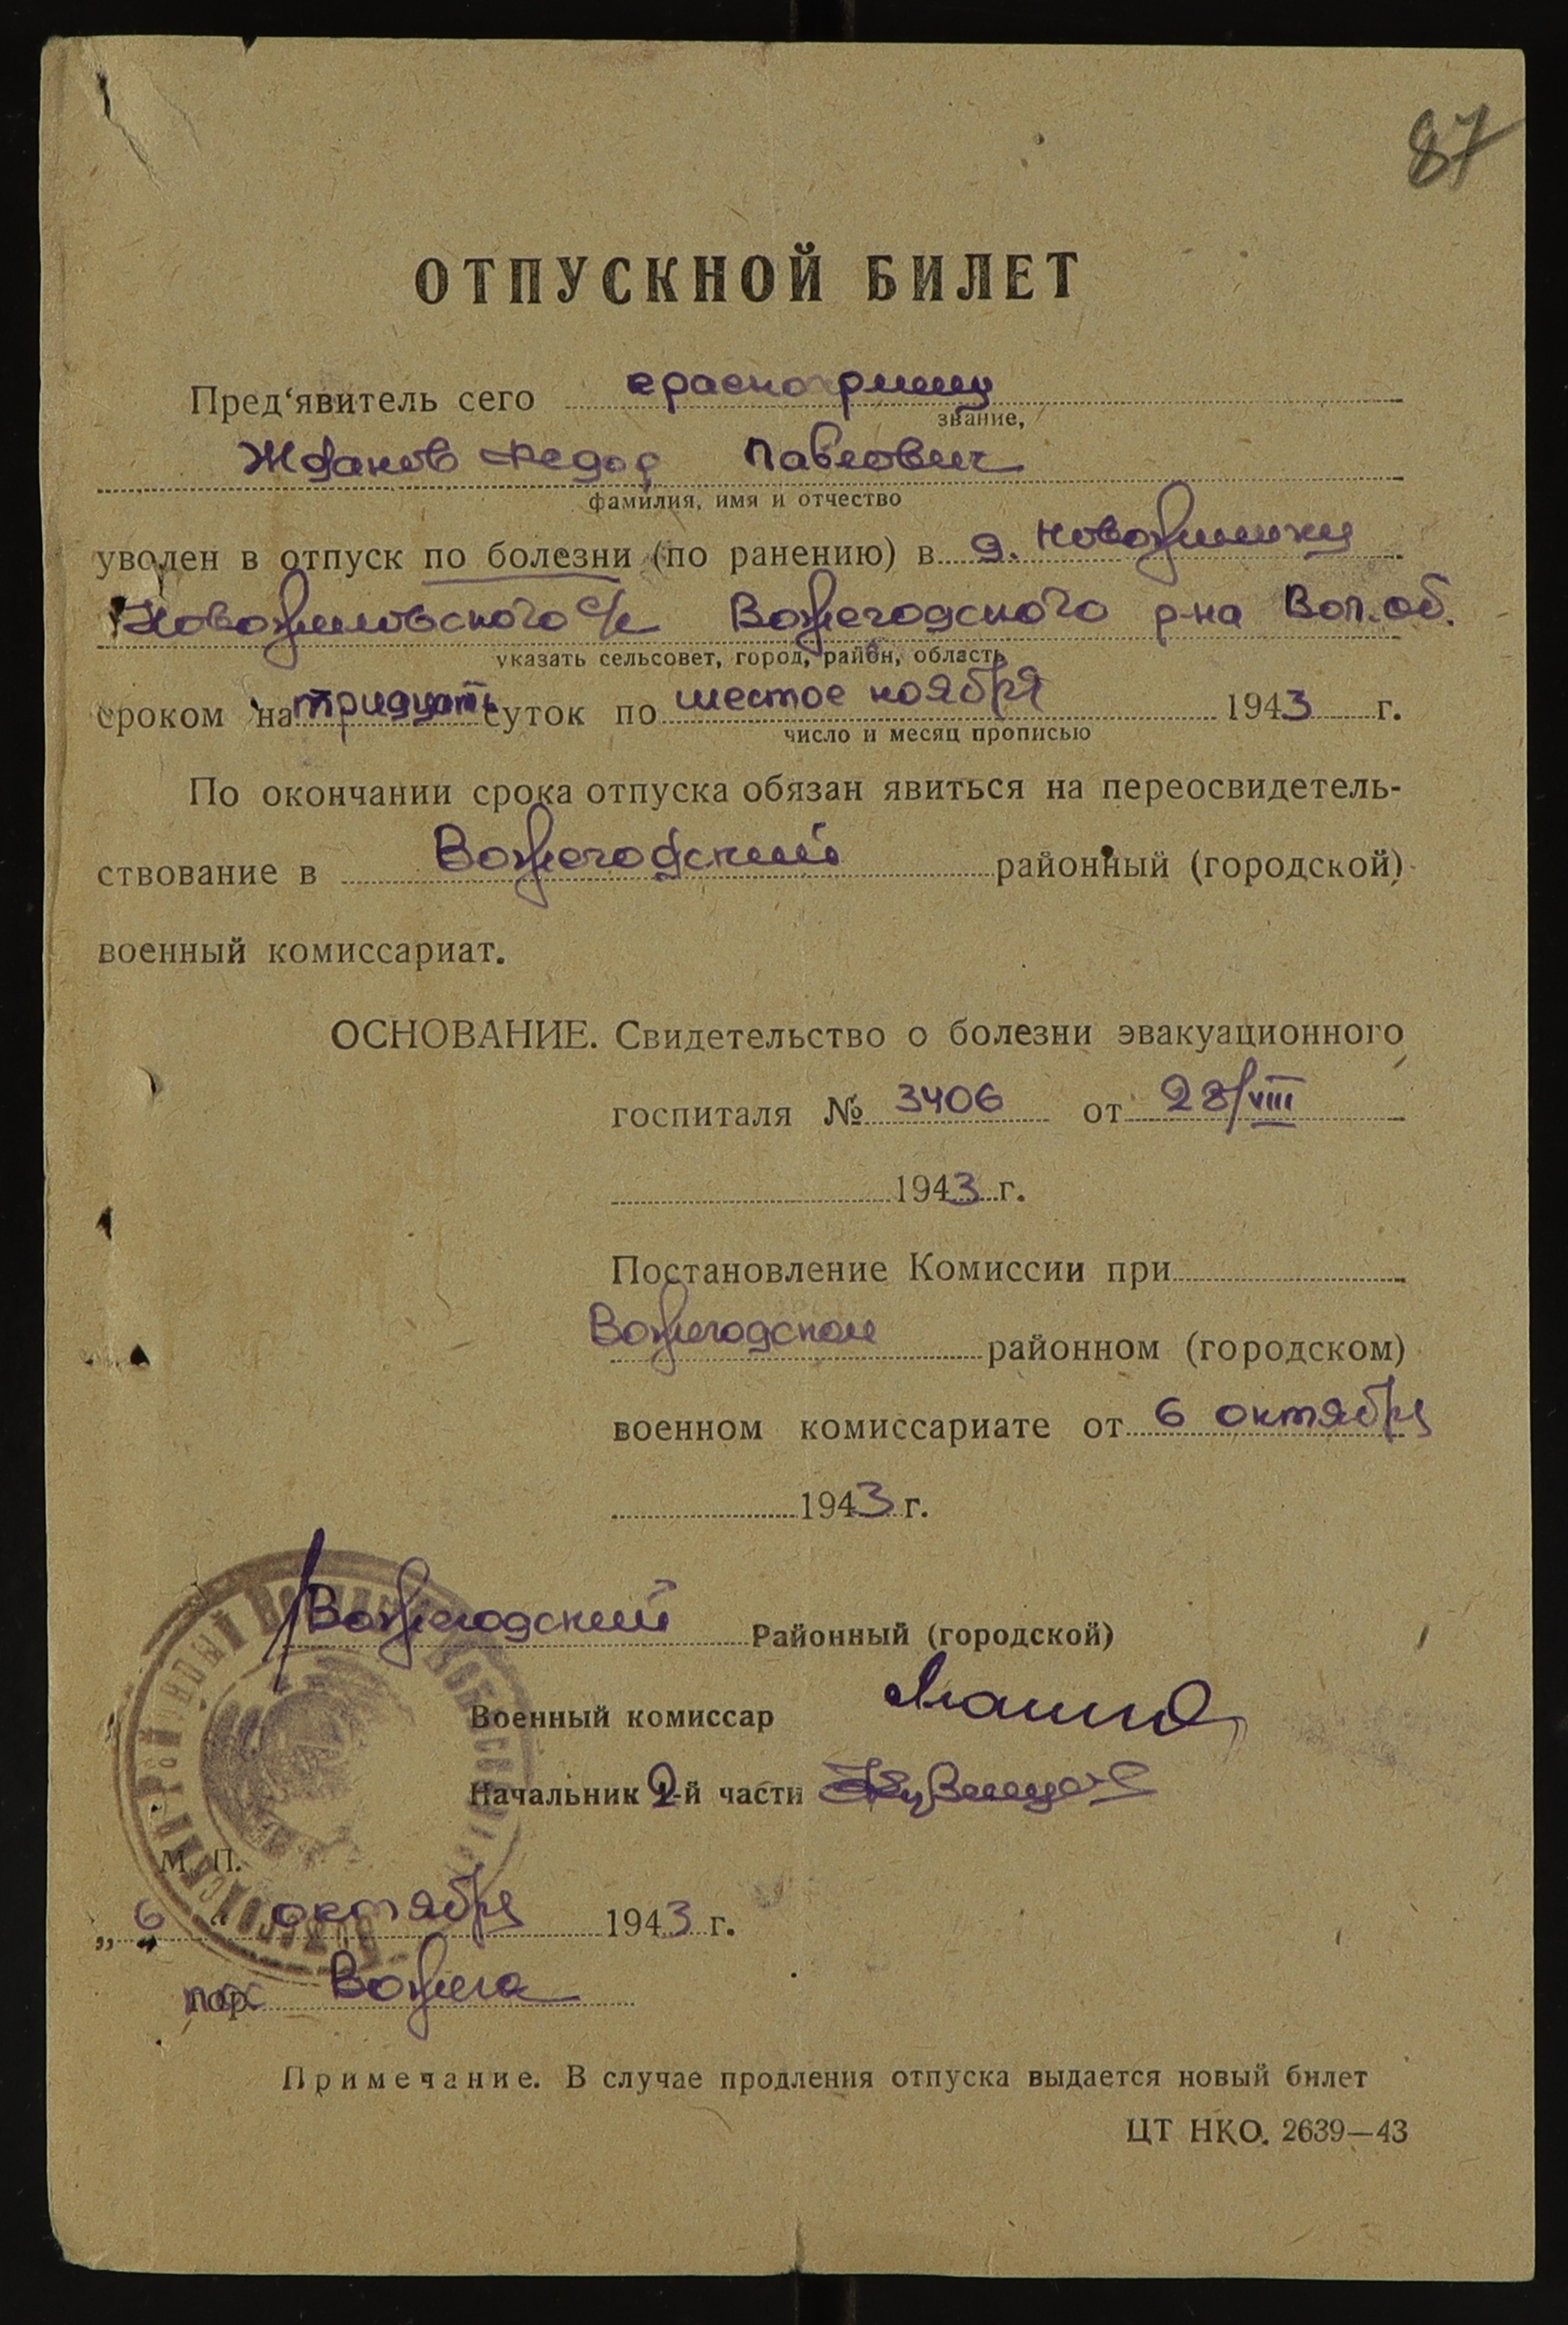 87
ОТПУСКНОЙ БИЛЕТ
Пред‘явитель сего
звание,
Жданов Федор Павлович
фамилия, имя и отчество
уволен в отпуск по болезни (по ранению) в д.
Новожиловского с/с Вожегодского р-на Вол. об.
указать сельсовет, город, район, область
сроком на тридцать суток по шестое ноября 1943 г.
число и месяц прописью
По окончании срока отпуска обязан явиться на переосвидетель-
ствование в Вожегодский районный (городской)
военный комиссариат.
ОСНОВАНИЕ. Свидетельство о болезни эвакуационного
госпиталя № 3406 от 28/VIII
1943 г.
Постановление Комиссии при
Вожегодском районном (городском)
военном комиссариате от 6 октября
1943 г.
Вожегодский Районный (городской)
Военный комиссар
Начальник 2-й части
М. П.
„ 6 “ октября 1943 г.
пос. Вожега
Примечание. В случае продления отпуска выдается новый билет
ЦТ НКО. 2639—43